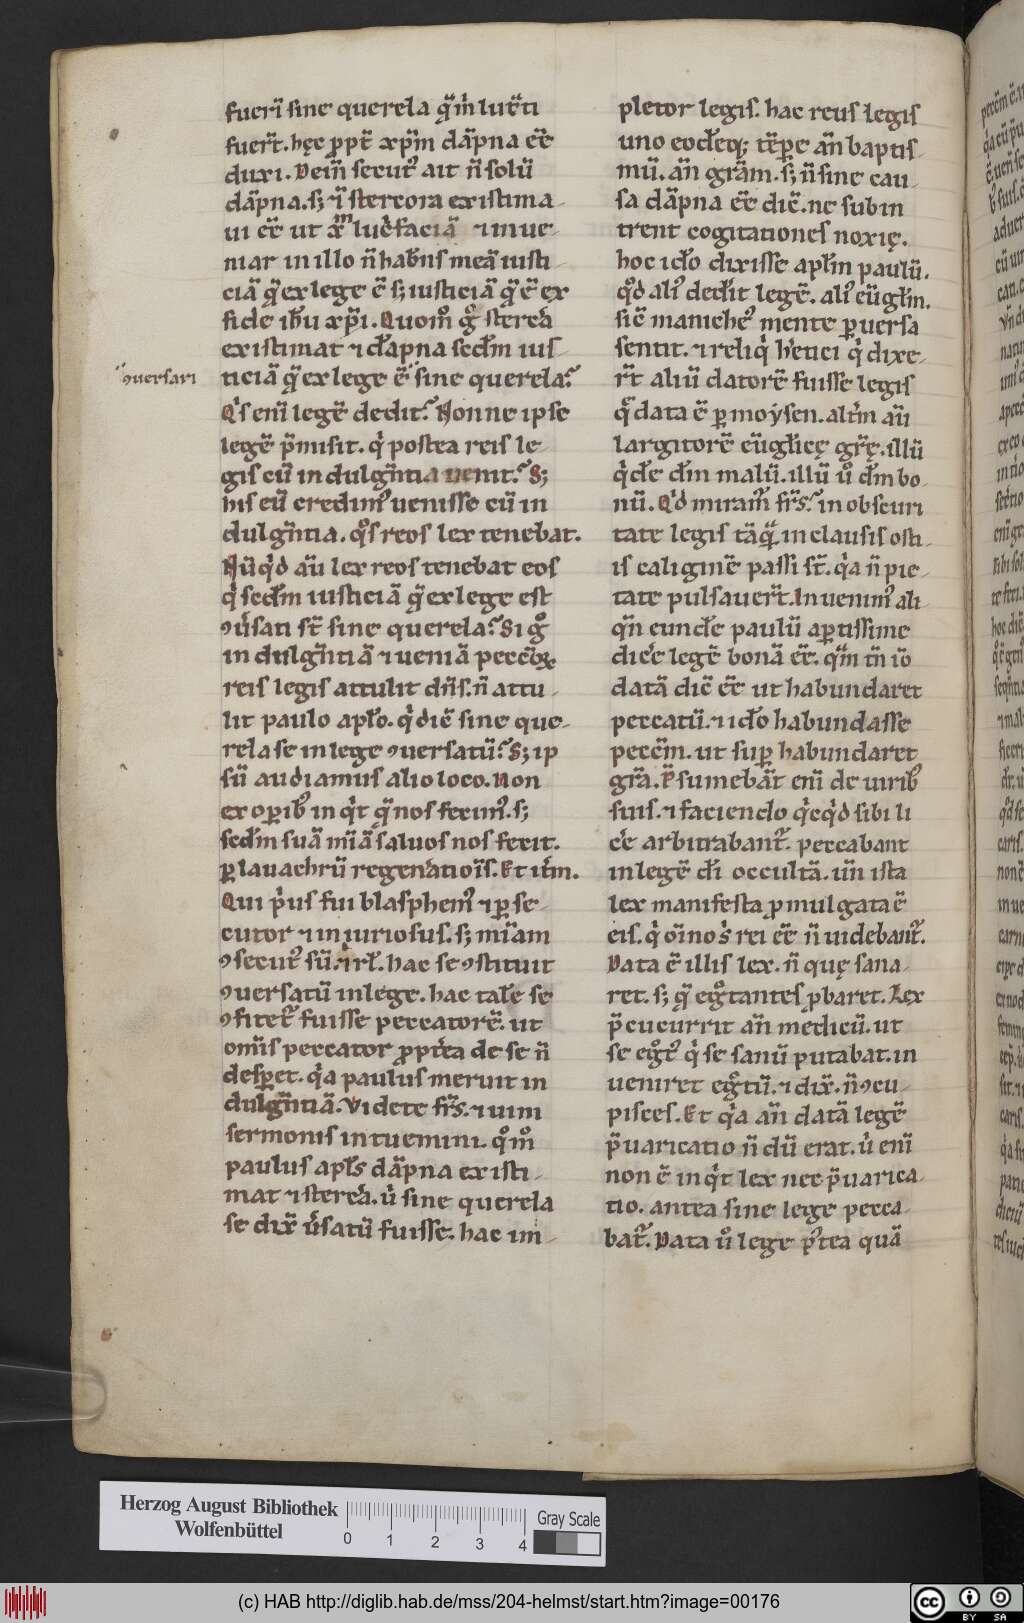 fueri͞ sine querela q̄ m͛ luc͛ti
fuer̄t. hęc ꝓpt̄ xp̄m dāpna ēē
duxi. Dein̄ secut᷒ ait n̄ solū
dāpna. s; ⁊ī stercora existima-
ui ēē ut xp̄m luc͛faciā ⁊ inue-
niar in illo n̄ hab̄ns meā iusti
ciā q̄ ex lege ē s; iusticiā q̄ ē ex
fide ih̄u xp̄i. Quom̊ g̊ sterc͛a
existimat ⁊ d̄apna scd̄m ius-
ꝯuersari
ticiā q̄ ex lege ē sine querela?
Qͥs eni͞ legē dedit? Nonne ipse
legē p̄misit. qͥ postea reis le-
gis cū indulḡntia uenit? S;
his eū credim᷒ uenisse cū in
dulḡntia. q̊s reos lex tenebat.
Nūqͥd āu lex reos tenebat eos
qͥ scd̄m iusticiā q̄ ex lege est
ꝯu͛sati st̄ sine querela? Si g̊
indulḡntiā ⁊ ueniā peccōꝝ
reis legis attulit dn̄s. n̄ attu-
lit paulo apl̄o. qͥ diē sine que-
rela se in lege ꝯuersatū? S; ip
sū audiamus alio loco. Non
ex opib᷒ inqͥt q̄ nos fecim᷒. s;
scd̄m suā mi͞ā saluos nos fecit.
ꝑ lauachrū regen͛atiōis. Et it͛m.
Qui pͥus fui blasphem᷒ ⁊ ꝑse-
cutor ⁊ iniuriosus. s; mi͞am
ꝯsecut᷒ sū. ⁊ rl̄. hac se ꝯstituit
ꝯuersatū in lege. hac tal̄e se
ꝯfitet᷑ fuisse peccatorē. ut
omīs peccator ꝓpt͛ea de se n̄
desꝑet. qͥa paulus meruit in
dulḡntiā. Videte fr̄s. ⁊ uim
sermonis intuemini. q̊m̊
paulus apl̄s dāpna existi-
mat ⁊ sterc͛a. u͛ sine querela
se dix̄ u͛satū fuisse. hac im-
pletor legis. hac reus legis
uno eod̄eq; tēꝑe an̄ baptis-
mū. an̄ grām. s; n̄ sine cau-
sa dāpna ēē diē. ne subin
trent cogitationes noxię.
hoc id̄o dixisse apl̄m paulū.
q̊d ali᷒ ded̄it legē. ali᷒ eūgl̄m.
sic̄ maniche᷒ mente ꝑuersa
sentit. ⁊ reliqͥ h͛etici qͥ dixe-
r̄t aliū datorē fuisse legis
q̄ data ē ꝑ moysen. alt͛m āu
largitorē eūgl̄icę gr̄ę. illū
qͥ d̄e d̄m malū. illū ů d̄m bo-
nū. Qͥd miram̄ fr̄s? in obscuri
tate legis tāq̄ in clausis osti-
is caliginē passi st̄. qͥa n̄ pie-
tate pulsauer̄t. Inuenim᷒ ali
qn̄ eund̄e paulū aꝑtissime
dic͛e legē bonā ēē. q̄m tn̄ iō
datā diē ēē ut habundaret
peccatū. ⁊ id̄o habundasse
peccm̄. ut suꝑ habundaret
gr̄a. P̄sumebāt eni͞ de uirib᷒
suis. ⁊ faciendo qͥcqͥd sibi li
c͛e arbitrabant᷑. peccabant
in legē d̄i occultā. un̄ ista
lex manifesta ꝓmulgata ē
eis. qͥ oīno s͛ rei ēē n̄ uidebant᷑.
Data ē illis lex. n̄ quę sana-
ret. s; q̄ eg̊tantes ꝓbaret. Lex
p̄cucurrit an̄ medicū. ut
se eg̊t᷒ qͥ se sanū putabat. in
ueniret eg̊tū. ⁊ dix̄. n̄ ꝯcu-
pisces. Et qͥa an̄ datā legē
p̄uaricatio n̄dū erat. u͛ eni͞
non ē inqͥt lex nec p̄uarica-
tio. antea sine lege pecca-
bat᷑. Data ů lege p᷒tea quā
Herzog August Bibliothek
Wolfenbüttel
0 1 2 3 4
Gray Scale
(c) HAB http://diglib.hab.de/mss/204-helmst/start.htm?image=00176
cc BY SA